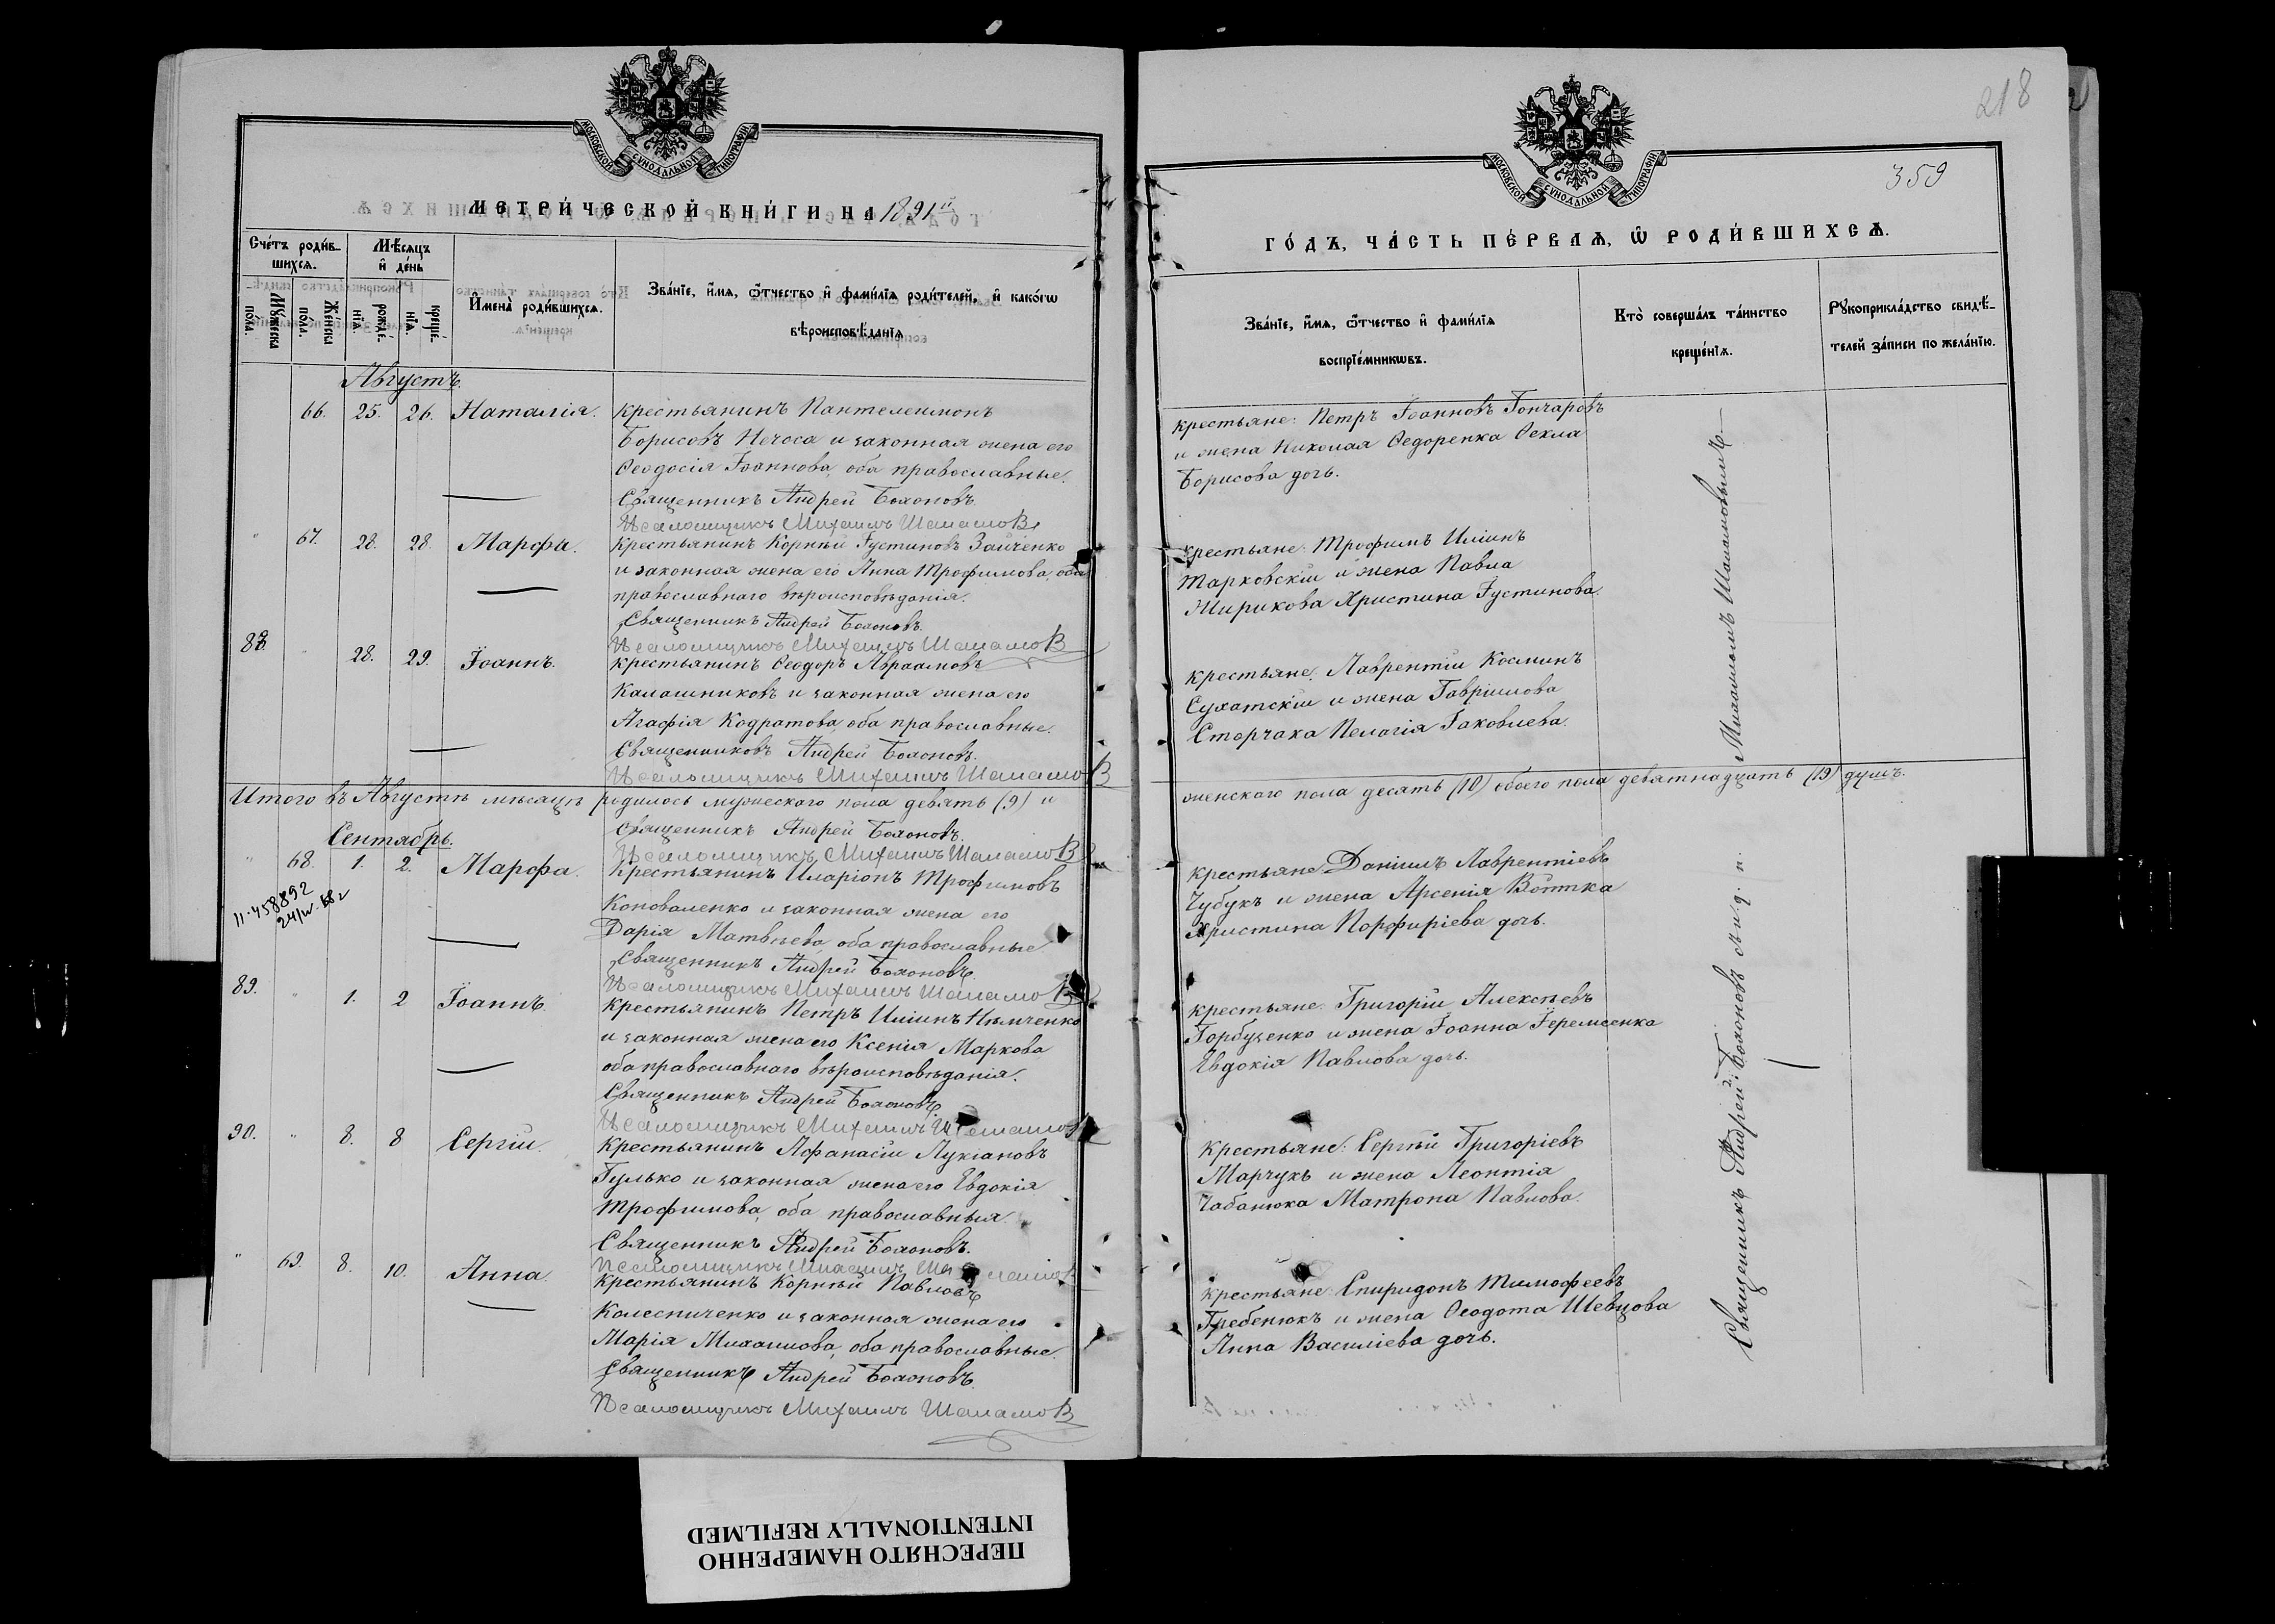 МОСКОВСКОЙ СѴНОДАЛЬНОЙ ТИПОГРАФІИ
МЕТРИ́ЧЕСКОЙ КНИ́ГИ НА 1891й
Сче́тъ роди́в-
шихсѧ.
Мѣ́сѧцъ
и҆ де́нь
И҆мена̀ роди́вшихсѧ.
Зва́нїе, и҆́мѧ, ѻ҆́тчество и҆ фами́лїѧ роди́телей, и҆ како́гѡ
вѣроисповѣ́данїѧ
Мꙋ́жеска
по́ла.
Же́нска
по́ла.
рожде́-
нїѧ.
креще́-
нїѧ.
Августъ.
66. 25. 26. Наталія. крестьянинъ Пантелеимонъ
Борисовъ Нечоса и законная жена его
Ѳеодосія Іоаннова, оба православные.
Священникъ Андрей
Псаломщикъ Михаилъ Шаламовъ
" 67. 28. 28. Марѳа. Крестьянинъ Корній Іустиновъ Зайченко
и законная жена его Анна Трофимова, оба
православнаго вѣроисповѣданія.
Священникъ Андрей
Псаломщикъ Михаилъ Шаламовъ
88. " 28. 29. Іоаннъ. крестьянинъ Ѳеодоръ Авраамовъ
Калашниковъ и законная жена его
Агафія Кодратова, оба православные.
Священниковъ Андрей
Псаломщикъ Михаилъ Шаламовъ
Итого въ Августѣ мѣсяцѣ родилось мужескаго пола девять (9) и
Священникъ Андрей
Псаломщикъ Михаилъ Шаламовъ
Сентябрь.
" 68. 1. 2. Марѳа. Крестьянинъ Иларіонъ Трофимовъ
11-458892
Коноваленко и законная жена его
Дарія Матвѣева, оба православные
Священникъ Андрей
Псаломщикъ Михаилъ Шаламовъ
89. " 1. 2 Іоаннъ. Крестьянинъ Петръ Иліинъ Нѣмченко
и законная жена его Ксенія Маркова
оба православнаго вѣроисповѣданія.
Священникъ Андрей
Псаломщикъ Михаилъ Шаламовъ
90. " 8. 8 Сергій. Крестьянинъ Аѳанасій Лукіановъ
Гулько и законная жена его Евдокія
Трофимова, оба православныя.
Священникъ Андрей
Псаломщикъ Михаилъ Шаламовъ
" 69. 8. 10. Анна. Крестьянинъ Корній Павловъ
Колесниченко и законная жена его
Марія Михаилова, оба православные.
Священникъ Андрей
Псаломщикъ Михаилъ Шаламовъ
218
359
МОСКОВСКОЙ СѴНОДАЛЬНОЙ ТИПОГРАФІИ
ГО́ДЪ, ЧА́СТЬ ПЕ́РВАѦ, Ѡ҆ РОДИ́ВШИХСѦ.
Зва́нїе, и҆́мѧ, ѻ҆́тчество и҆ фами́лїѧ
воспрїе́мникѡвъ.
Кто̀ соверша́лъ та́инство
креще́нїѧ.
Рꙋкоприкла́дство свидѣ́-
телей за́писи по жела́нїю.
крестьяне: Петръ Іоанновъ Гончаровъ
и жена Николая Ѳедоренка Ѳекла
Борисова дочь.
крестьяне: Трофимъ Иліинъ
Тарковскій и жена Павла
Жирикова Христина Іустинова.
крестьяне: Лаврентій Косминъ
Сухатскій и жена Гавріилова
Сторчака Пелагія Іаковлева.
женскаго пола десять (10) обоего пола девятнадцать (19) душъ.
крестьяне Даніилъ Лаврентіевъ
Чубукъ и жена Арсенія Войтка
Христина Порфиріева дочь.
крестьяне: Григорій Алексѣевъ
Горбузенко и жена Іоанна Іеремеенка
Евдокія Павлова дочь.
Крестьяне: Сергѣй Григоріевъ
Марчукъ и жена Леонтія
Чабанюка Матрона Павлова.
крестьяне: Спиридонъ Тимофеевъ
Гребенюкъ и жена Ѳеодота Шевцова
Анна Василіева дочь.
Священникъ Андрей
Михаиломъ Шаламовымъ
ПЕРЕСНЯТО НАМЕРЕННО
INTENTIONALLY REFILMED